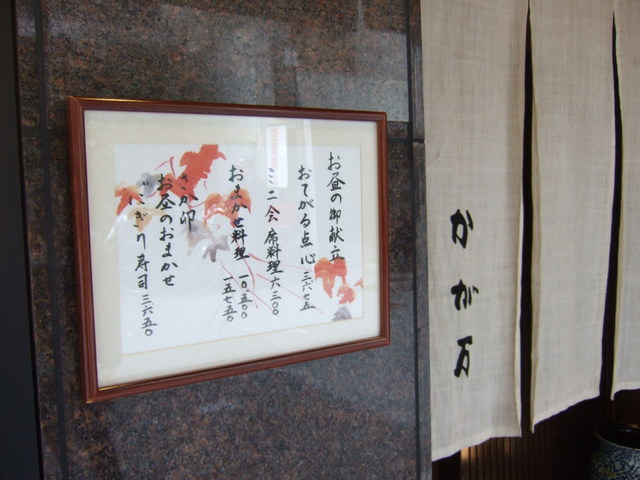 お昼の御献立
おてがる点心 三六七五
ミニ会席料理 六三〇〇
おまかせ料理 一〇、五〇〇
一五七五〇
さか卯
お昼のおまかせ
にぎり寿司 三六五〇
かが万